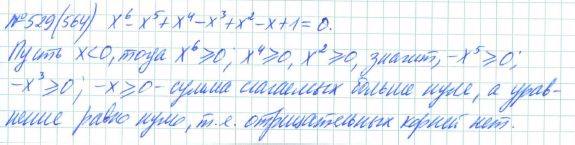 №529(564) x⁶-x⁵+x⁴-x³+x²-x+1=0.
Пусть x<0, тогда x⁶⩾0; x⁴⩾0, x²⩾0, значит, -x⁵⩾0;
-x³⩾0; -x⩾0 - сумма слагаемых больше нуля, а урав-
нение равно нулю, т.е. отрицательных корней нет.